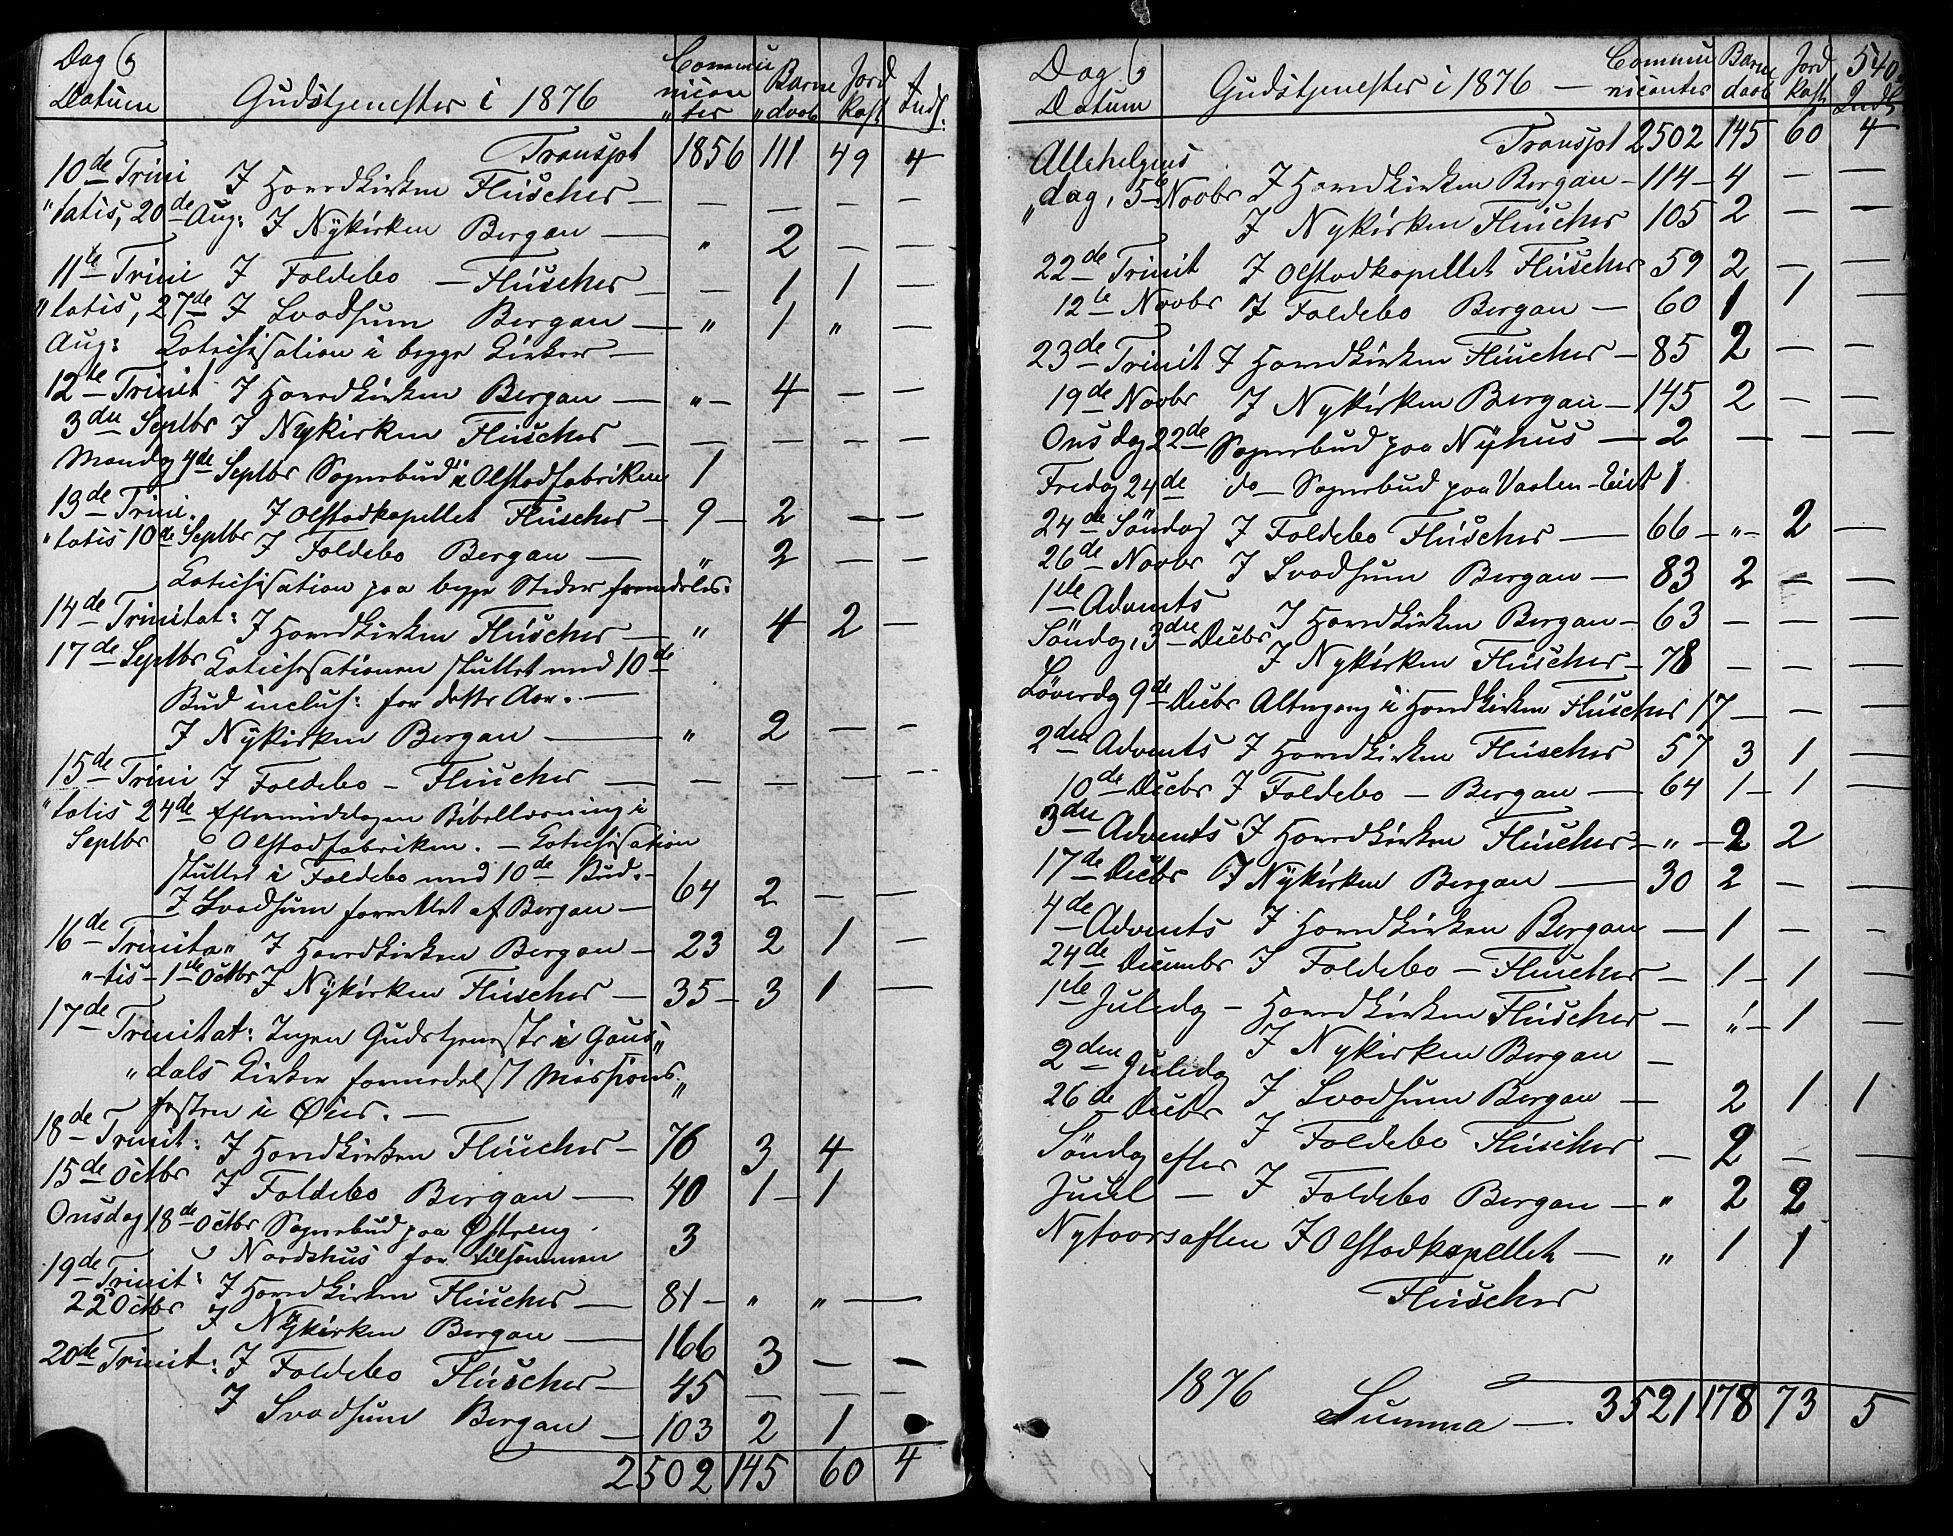 Dag &
Datum
Gudstjenester i 1876
Commu
nican
"ter
Barne
"daab
Jord
kast
Indl.
Transpt 1856 111 49 4
10de Trini I Hovedkirken Fluscher — — — — —
"tatis, 20de Aug: I Nykirken Bergan — " 2 — —
11te Trini I Foldebo — Fluscher — — 1 1 —
"tatis, 27de I Svadsum Bergan — " 1 " —
Aug: Catechisation i begge Kirker —
12te Trinit I Hovedkirken Bergan — " — 4 — —
3die Septbr I Nykirken Fluscher — — — — —
Mandag 4de Septbr Sognebud i Olstadfabriken 1
13de Trini. I Olstadkapellet Fluscher — 9 — 2 — —
"tatis 10de Septbr I Foldebo Bergan — " 2 — —
Catechisation paa begge Steder fremdeles.
14de Trinitat: I Hovedkirken Fluscher — " 4 2 —
17de Septbr Catechisationen sluttet med 10de
Bud inclus: for dette Aar. —
I Nykirken Bergan — " 2 — —
15de Trini I Foldebo — Fluscher — — — — —
"tatis 24de Eftermiddagen Bibellæsning i
Septbr Olstadfabriken. — Catechisation
sluttet i Foldebo med 10de Bud. —
I Svadsum forrettet af Bergan — 64 2 — —
16de Trinita" I Hovedkirken Bergan — 23 2 1 —
"tis — 1ste Octbr I Nykirken Fluscher — 35 — 3 1 —
17de Trinitat: Ingen Gudstjeneste i Gaus"
"dals Kirker formedelst Missions"
festen i Øier. —
18de Trinit: I Hovedkirken Fluscher — 76 3 4
15de Octbr I Foldebo Bergan — 40 1 — 1
Onsdag 18de Octbr Sognebud paa Østreng
& Nordshus for tilsammen 3
19de Trinit: I Hovedkirken Fluscher — 81 — " " —
22 Octbr I Nykirken Bergan — 166 3 — —
20de Trinit: I Foldebo Fluscher — 45 — — —
I Svadsum Bergan — 103 2 1
2502 145 60 4
Dag &
Datum
Gudstjenester i 1876 —
Commu
nicanter
Barne
daab
Jord
kast
540.
Indl
Transpt 2502 145 60 4
Allehelgens
"dag, 5te Novbr I Hovedkirken Bergan — 114 — 4 — —
I Nykirken Fluscher 105 2 — —
22de Trinit I Olstadkapellet Fluscher 59 2 — —
12te Novbr I Foldebo Bergan — 60 1 1 —
23de Trinit I Hovedkirken Fluscher — 85 2 — —
19de Novbr I Nykirken Bergan — 145 2 — —
Onsdag 22de Sognebud paa Nyhus — 2 — — —
Fredag 24de do — Sognebud paa 1
24de Söndag I Foldebo Fluscher — 66 — " — 2 —
26de Novbr I Svadsum Bergan — 83 2 — —
1ste Advents
Söndag, 3die Decbr I Hovedkirken Bergan — 63 — — —
I Nykirken Fluscher — 78 — — —
Löverdag 9de Decbr Altergang i Hovedkirken Fluscher 17 — — —
2den Advents I Hovedkirken Fluscher 57 3 1 —
10de Decbr I Foldebo — Bergan — 64 1 — 1 —
3die Advents I Hovedkirken Fluscher — " — 2 2
17de Decbr I Nykirken Bergan — 30 2 — —
4de Advents I Hovedkirken Bergan — 1 — —
24de Decembr I Foldebo — Fluscher — 1 — 1 —
1ste Juledag — Hovedkirken Fluscher — " — 1 —
I Nykirken Bergan —
2den Juledag I Svadsum Bergan — 2 1 1
26de Decbr I Foldebo Fluscher — 2 — —
Söndag efter
Juul — I Foldebo Bergan — " 2 2
Nytaarsaften I Olstadkapellet — " 1 1
Fluscher
1876 Summa — 3521 178 73 5